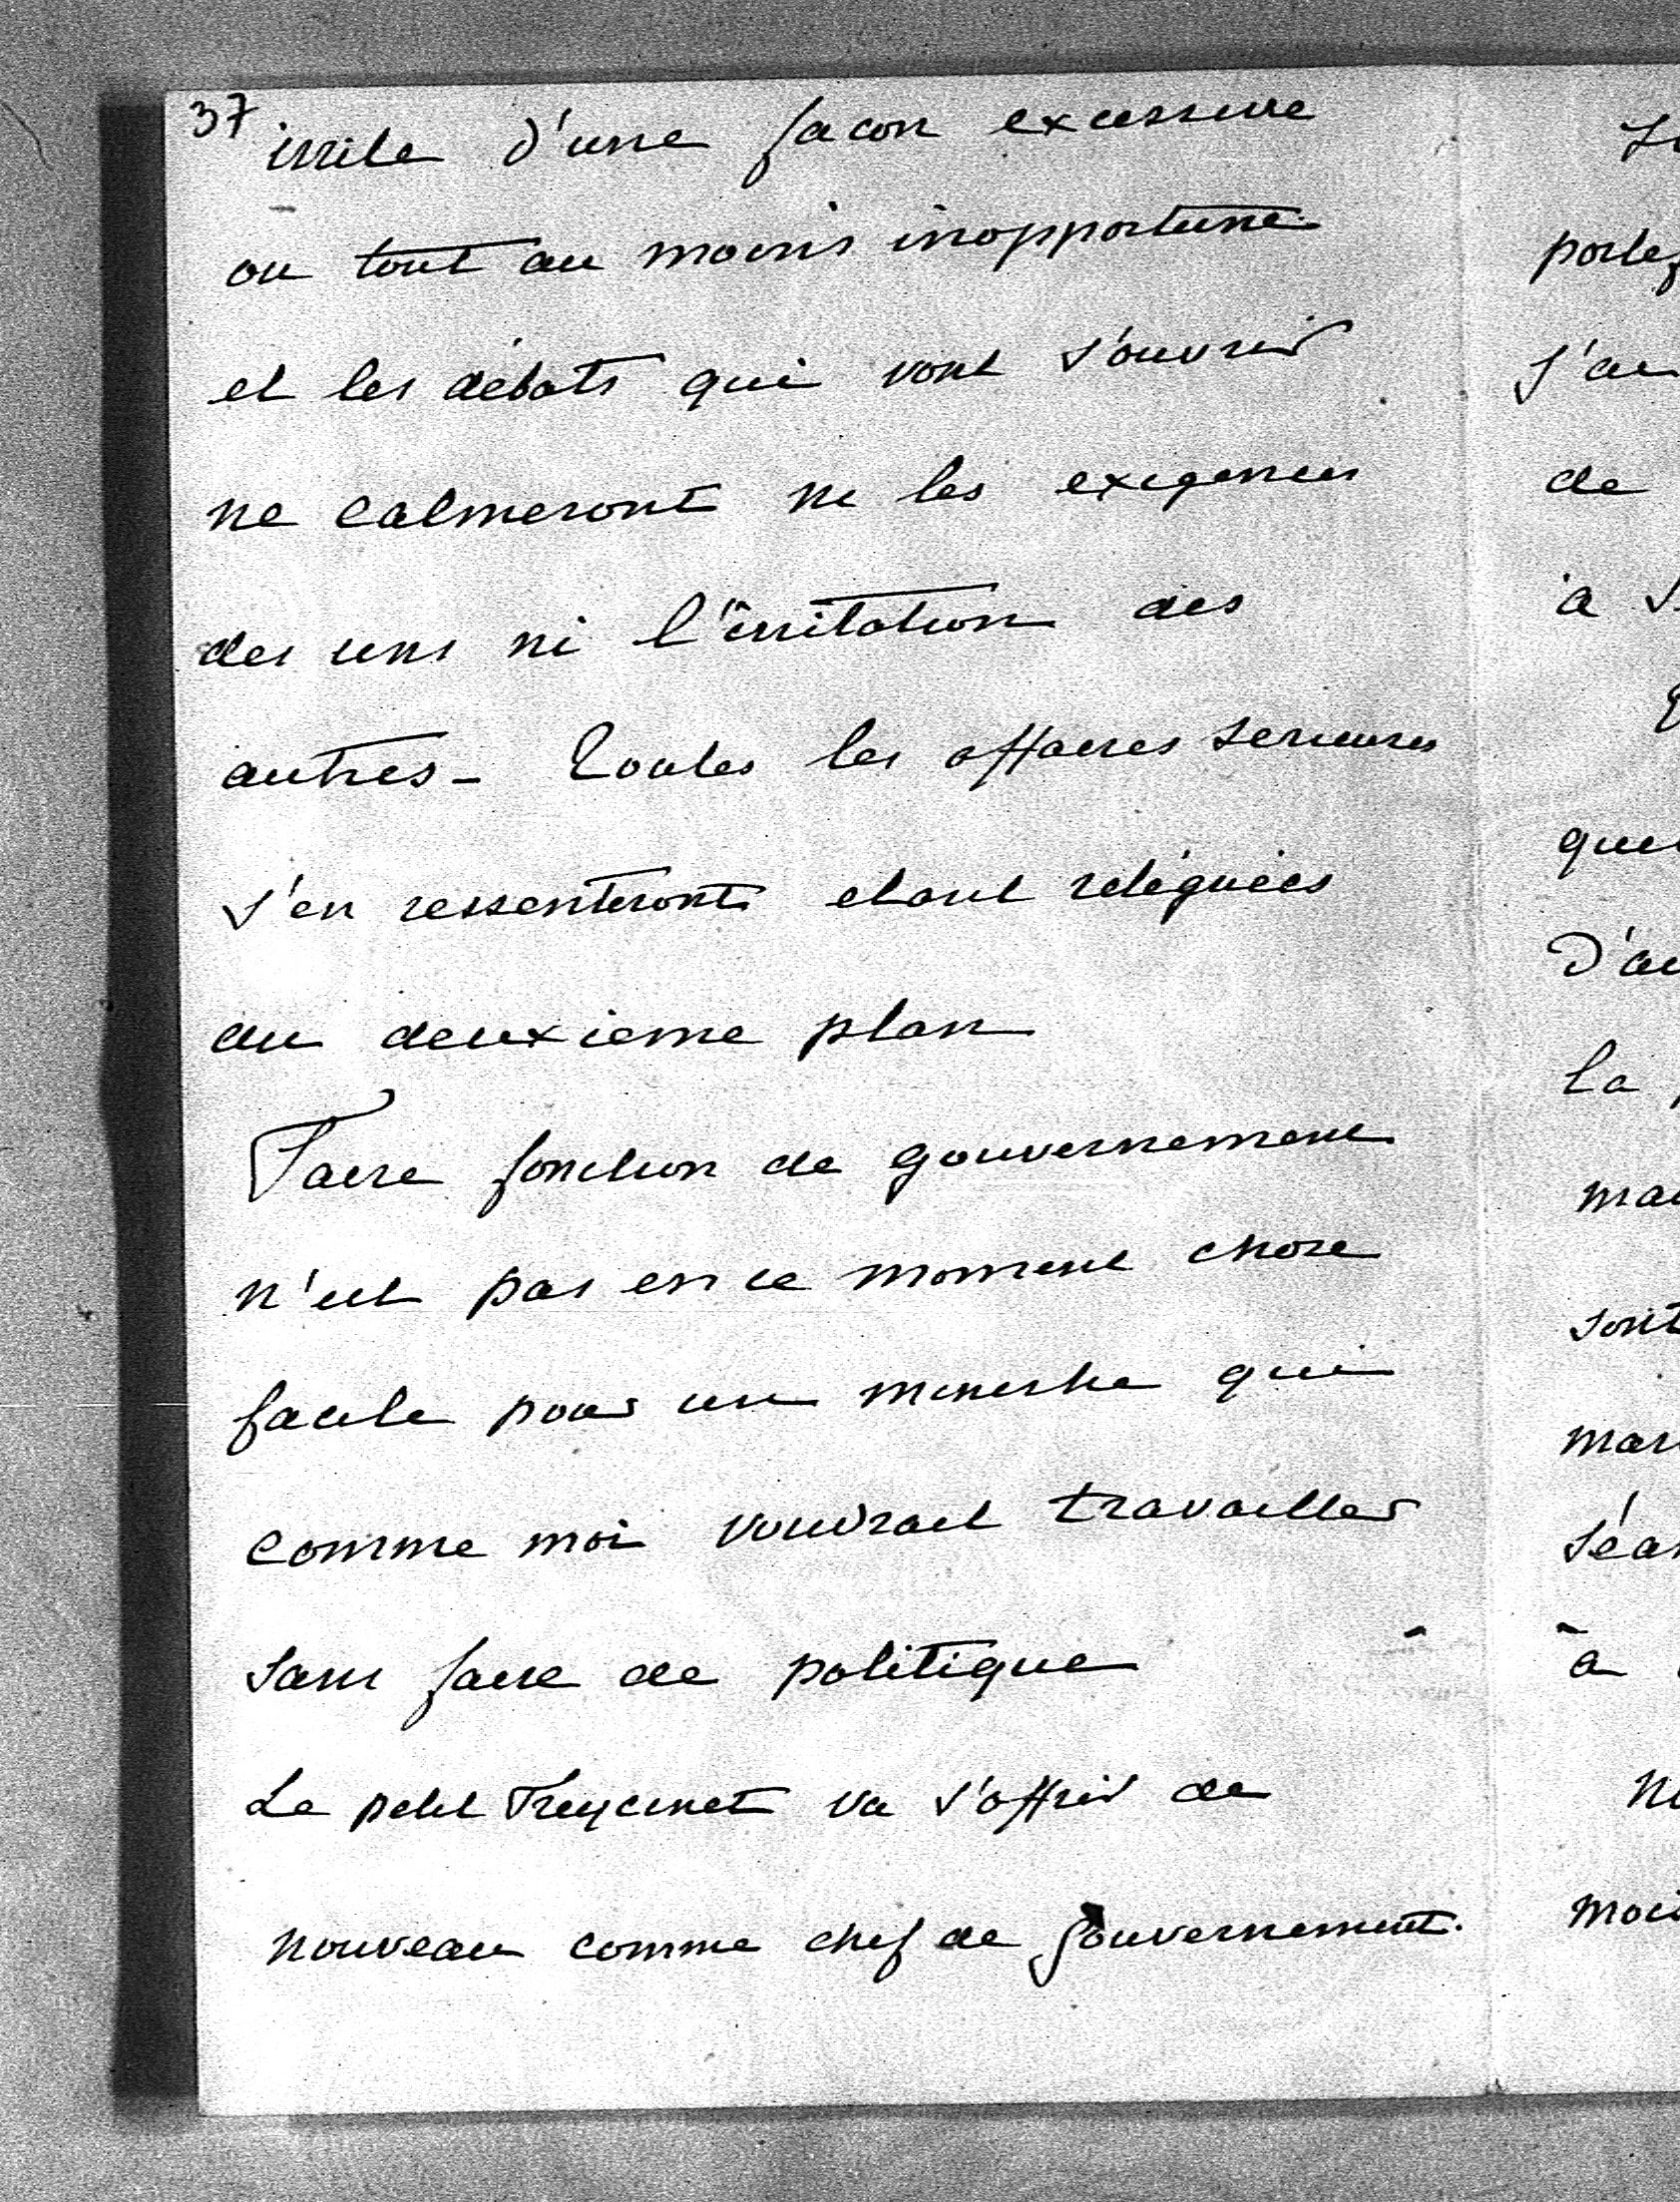 37 irrite d'une facon excessive
ou tout au moins inopportune.
et les débats qui vont s'ouvrir
ne calmeront ni les exigences
des uns ni l'irritation des
autres - Toutes les affaires serieuses
s'en ressentiront etant reléguées
au deuxieme plan
Faire fonction de gouvernement
n'est pas en ce moment chose
facile pour un ministre qui
comme moi voudrait travailler
sans faire de politique
Le petit Freycinet va s'offrir de
nouveau comme chef de gouvernement.
portez
j'au
de
à s
que
d'au
la
mai
sont
mar
séan
à
moi